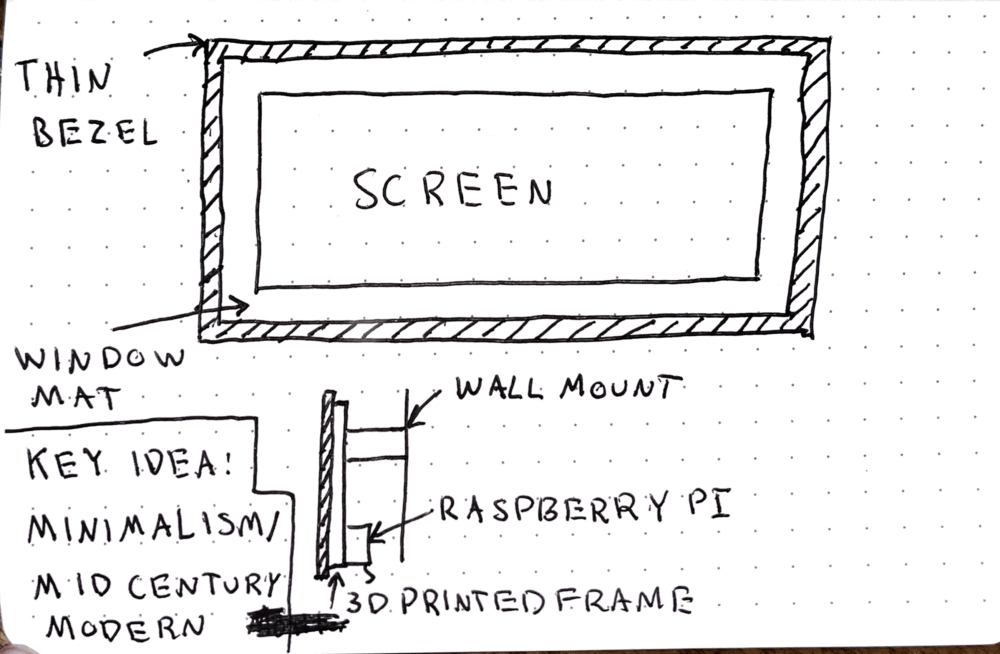 THIN
BEZEL
SCREEN
WINDOW
MAT
WALL MOUNT
KEY IDEA!
RASPBERRY PI
MINIMALISM/
MID CENTURY
3D PRINTED FRAME
MODERN